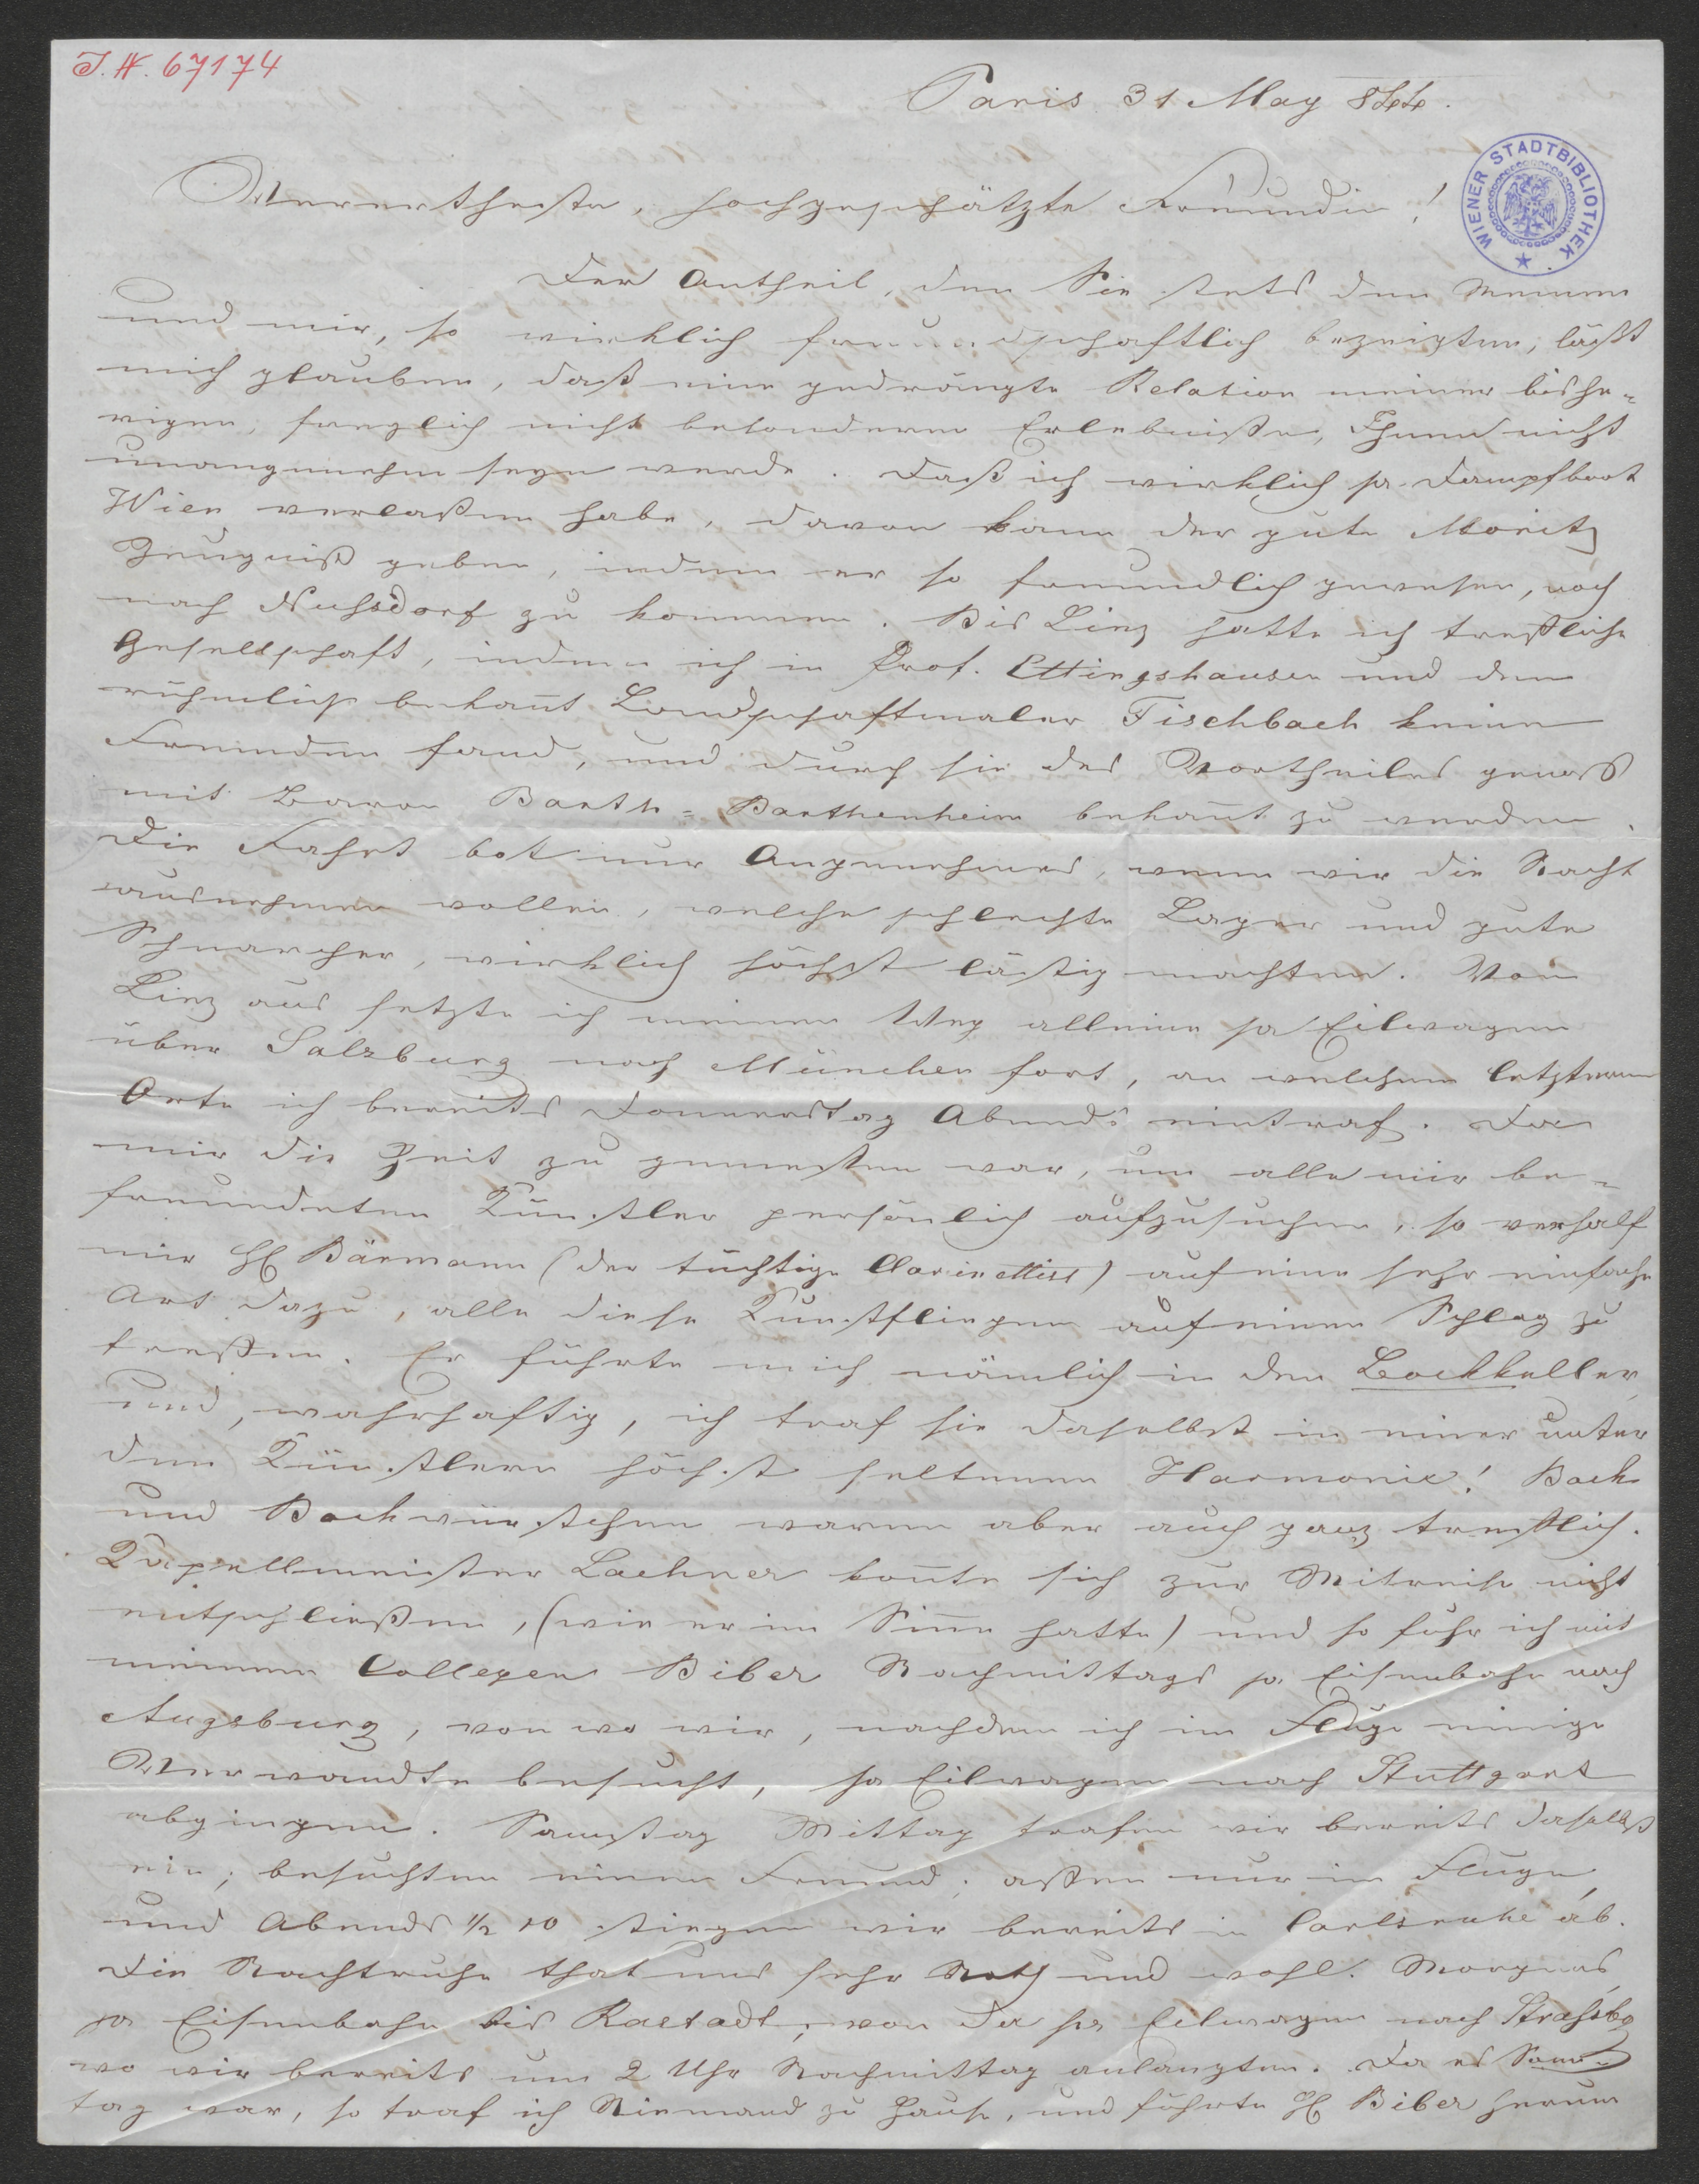 I.N. 67174
Paris 31 May 844.
WIENER STADTBIBLIOTHEK
Verertheste, hochgeschätzte Freundin!
Der Antheil, den Sie stets den Meinen
und mir, so wirklich freundschaftlich bezeigten, läßt
mich glauben, daß eine gedrängte Relation meiner bishe=
rigen, freylich nicht besonderen Erlebniße, Ihnen nicht
unangenehm seyn werde. Daß ich wirklich pr Dampfboot
Wien verlaßen habe, davon kann der gute Moritz
Zeugniß geben, indem er so freundlich gewesen, noch
nach Nuhsdorf zu kommen. Bis Linz hatte ich treffliche
Gesellschaft, indem ich in Prof. Ettingshausen und dem
rühmlich bekañt Landschaftmaler Fischbach keine
Fremden fand, und durch sie des Vortheiles genoß
mit Baron Barth=Barthenheim bekañt zu werden.
Die Fahrt bot nur Angenehmes, wenn wir die Nacht
ausnehmen wollen, welche schlechte Lager und gute
Schnarcher, wirklich höchst lästig machten. Von
Linz aus setzte ich meinen Weg alleine pr Eilwagen
über Salzburg nach München fort, an welchem letzteren
Orte ich bereits Donnerstag Abends eintraf. Da
mir die Zeit zu gemessen war, um alle mir be=
freundeten Künstler persönlich aufzusuchen, so verhalf
mir H Bärmann (der tüchtige Clarinettist) auf eine sehr einfache
Art dazu, alle diese Kunstfliegen auf einen Schlag zu
treffen. Er führte mich nämlich in den Bockkeller,
und, wahrhaftig, ich traf sie daselbst in einer unter
den Künstlern höchst seltenen Harmonie! Bock
und Bockwürstchen waren aber auch ganz trefflich.
Kapellmeister Lachner koñte sich zur Mitreise nicht
entschließen, (wie er im Siñe hatte) und so fuhr ich mit
meinem Collegen Biber Nachmittags pr Eisenbahn nach
Augsburg, von wo wir, nachdem ich im Fluge einige
Verwandte besucht, pr Eilwagen nach Stuttgart
abgingen. Samstag Mittag trafen wir bereits daselbst
ein; besuchten einen Freund; aßen nur im Fluge,
und Abends ½ 10 stiegen wir bereits in Carlsruhe ab.
Die Nachtruhe that uns sehr Noth und wohl. Morgens,
pr Eisenbahn bis Rastadt, von da pr Eilwagen nach Strahsbg
wo wir bereits um 2 Uhr Nachmittag anlangten. Da es Sonn=
tag war, so traf ich Niemand zu Hause, und führte H Biber herum